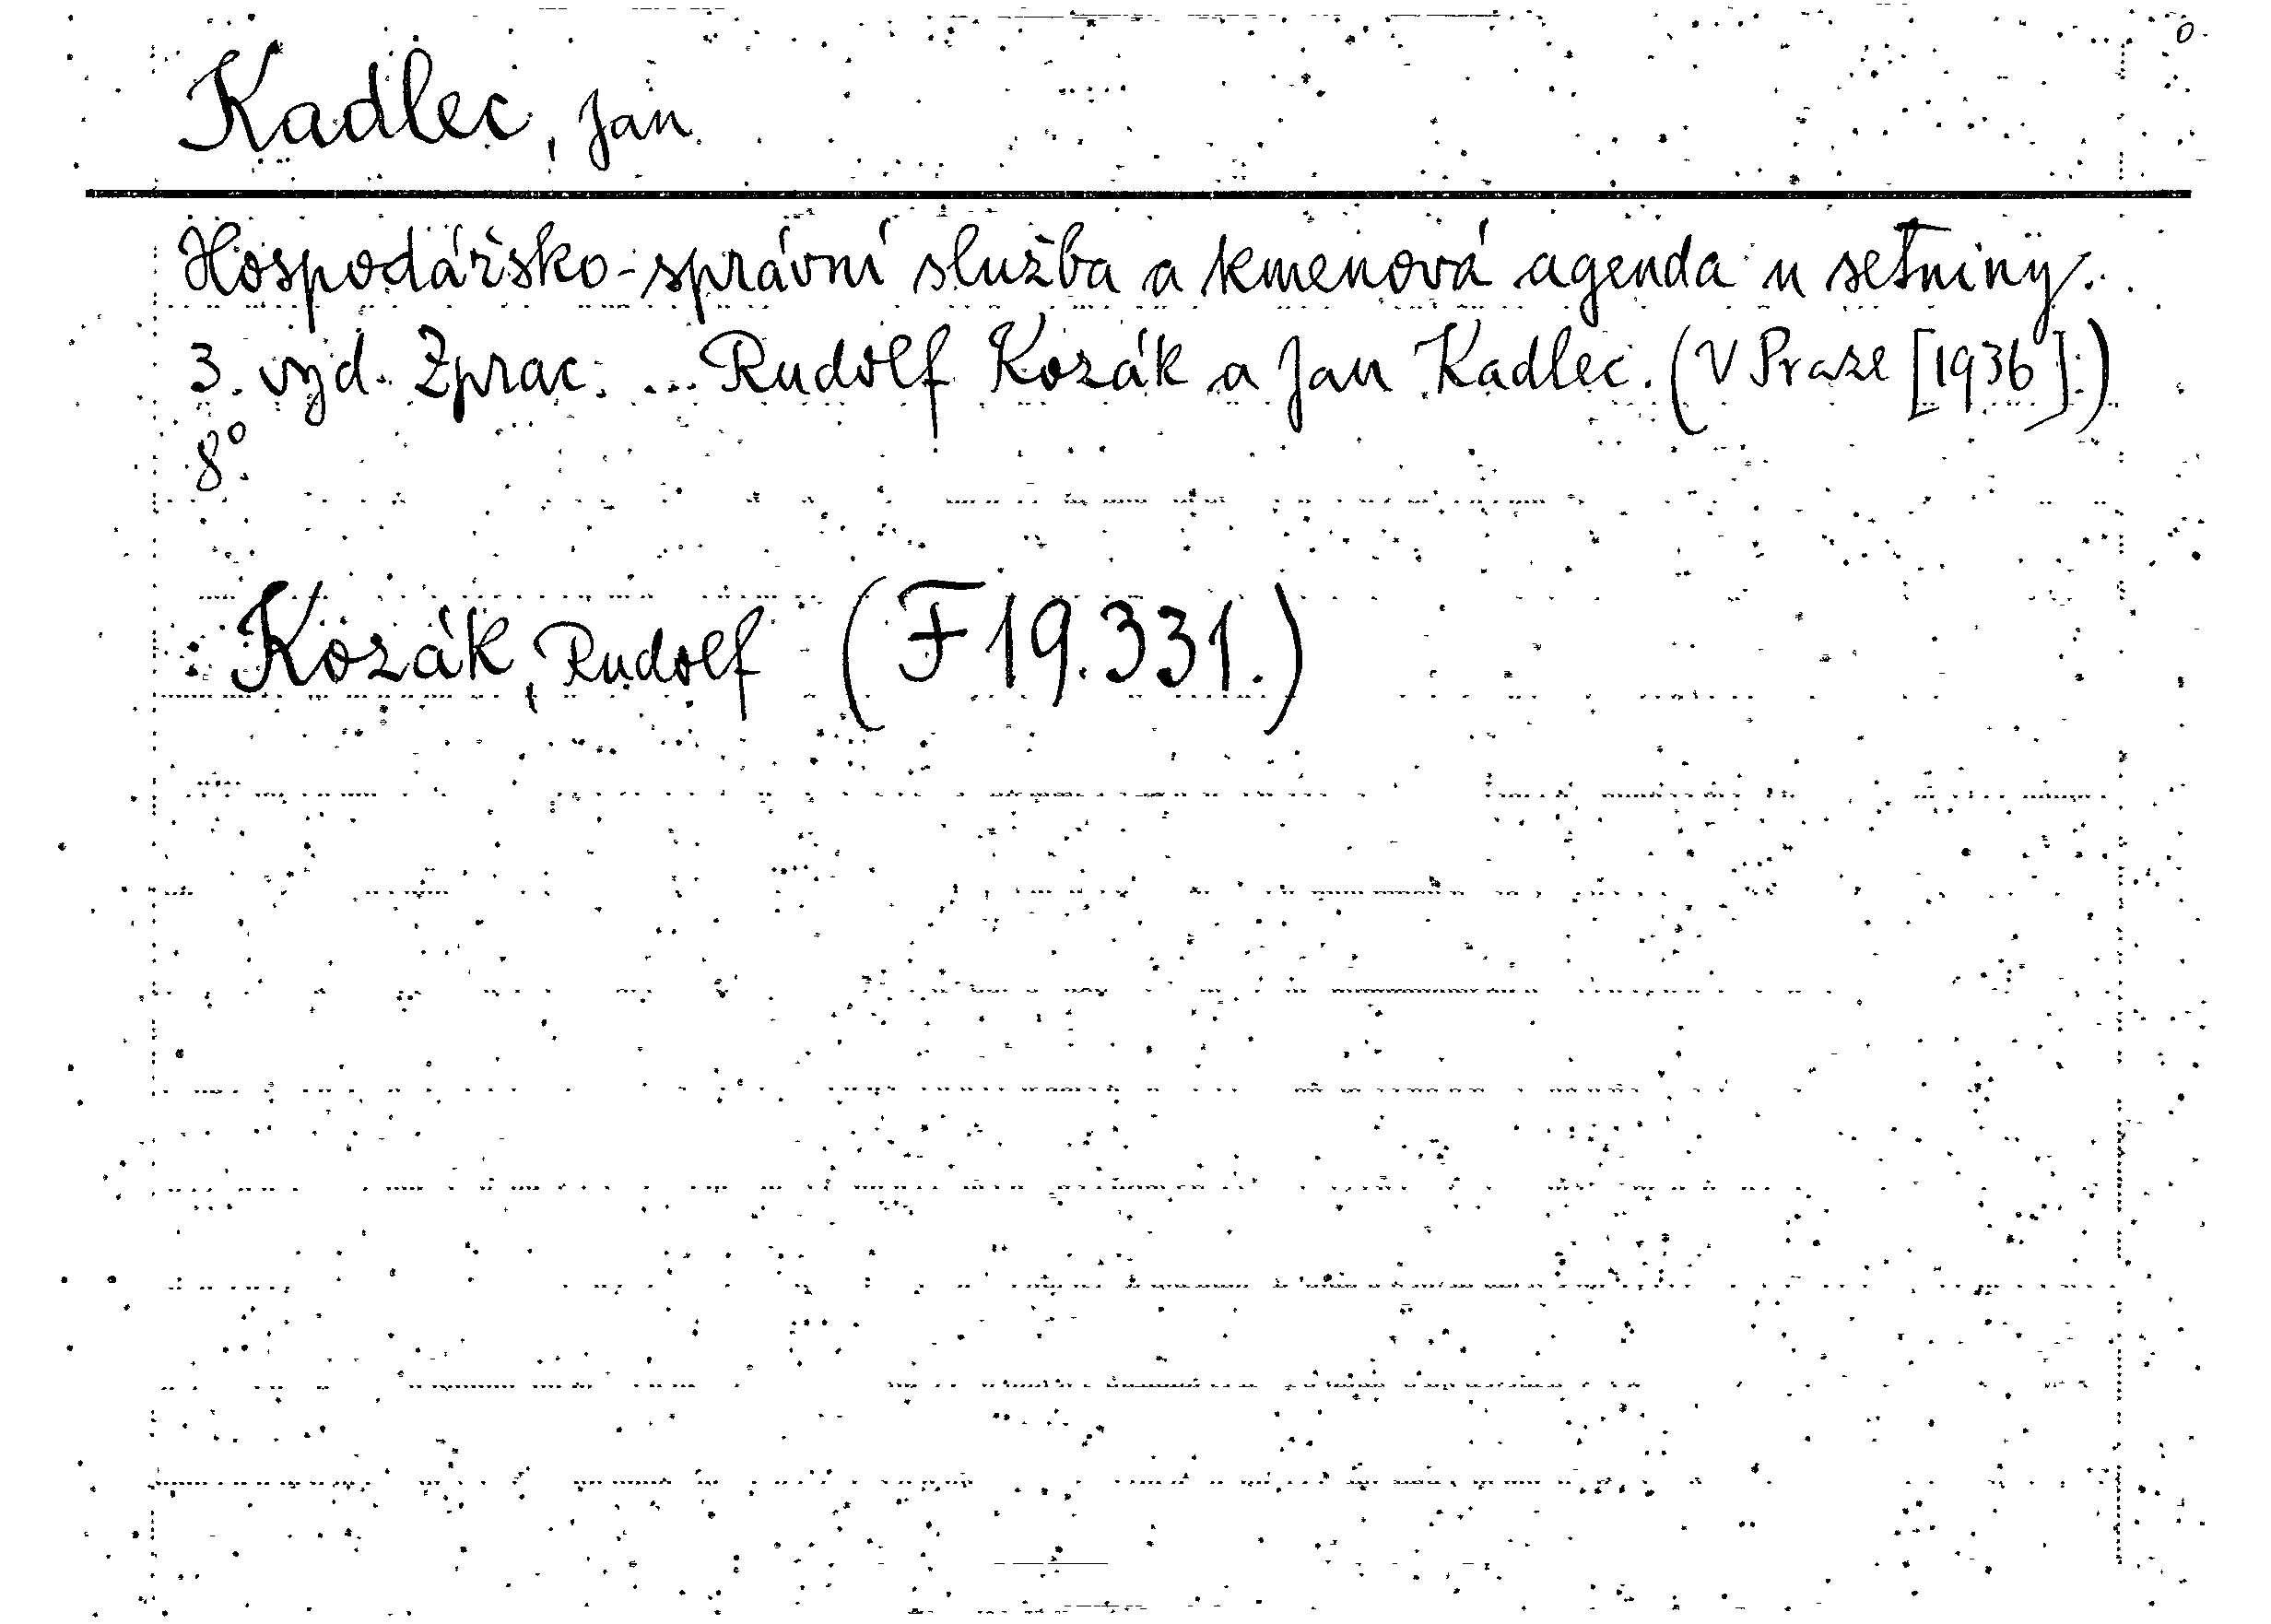 Kadlec, Jan
Hospodářsko-správní služba a kmenová agenda u setniny.
3. vyd. Zprac. ... Rudolf Kozák a Jan Kadlec. (V Praze [1936].)
8°.
Kozák, Rudolf (F 19.331.)